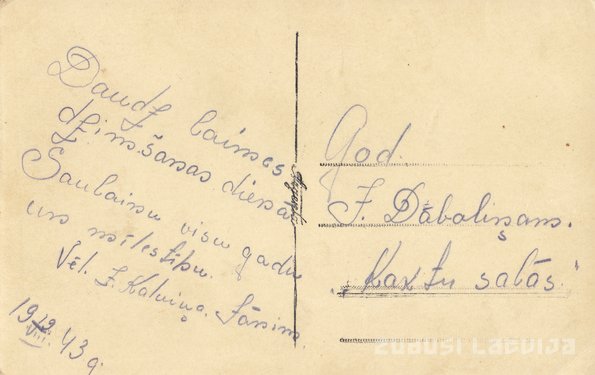 Daudz laimes
dzimšanas dienā
Saulainu visu gadu
un mīlestību.
Vēl. Z. Kalniņa. Jānim.
19 19./VIII. 43 g.
God.
J. Dāboliņam.
"Kaktu salās."
ZUDUSI LATVIJA